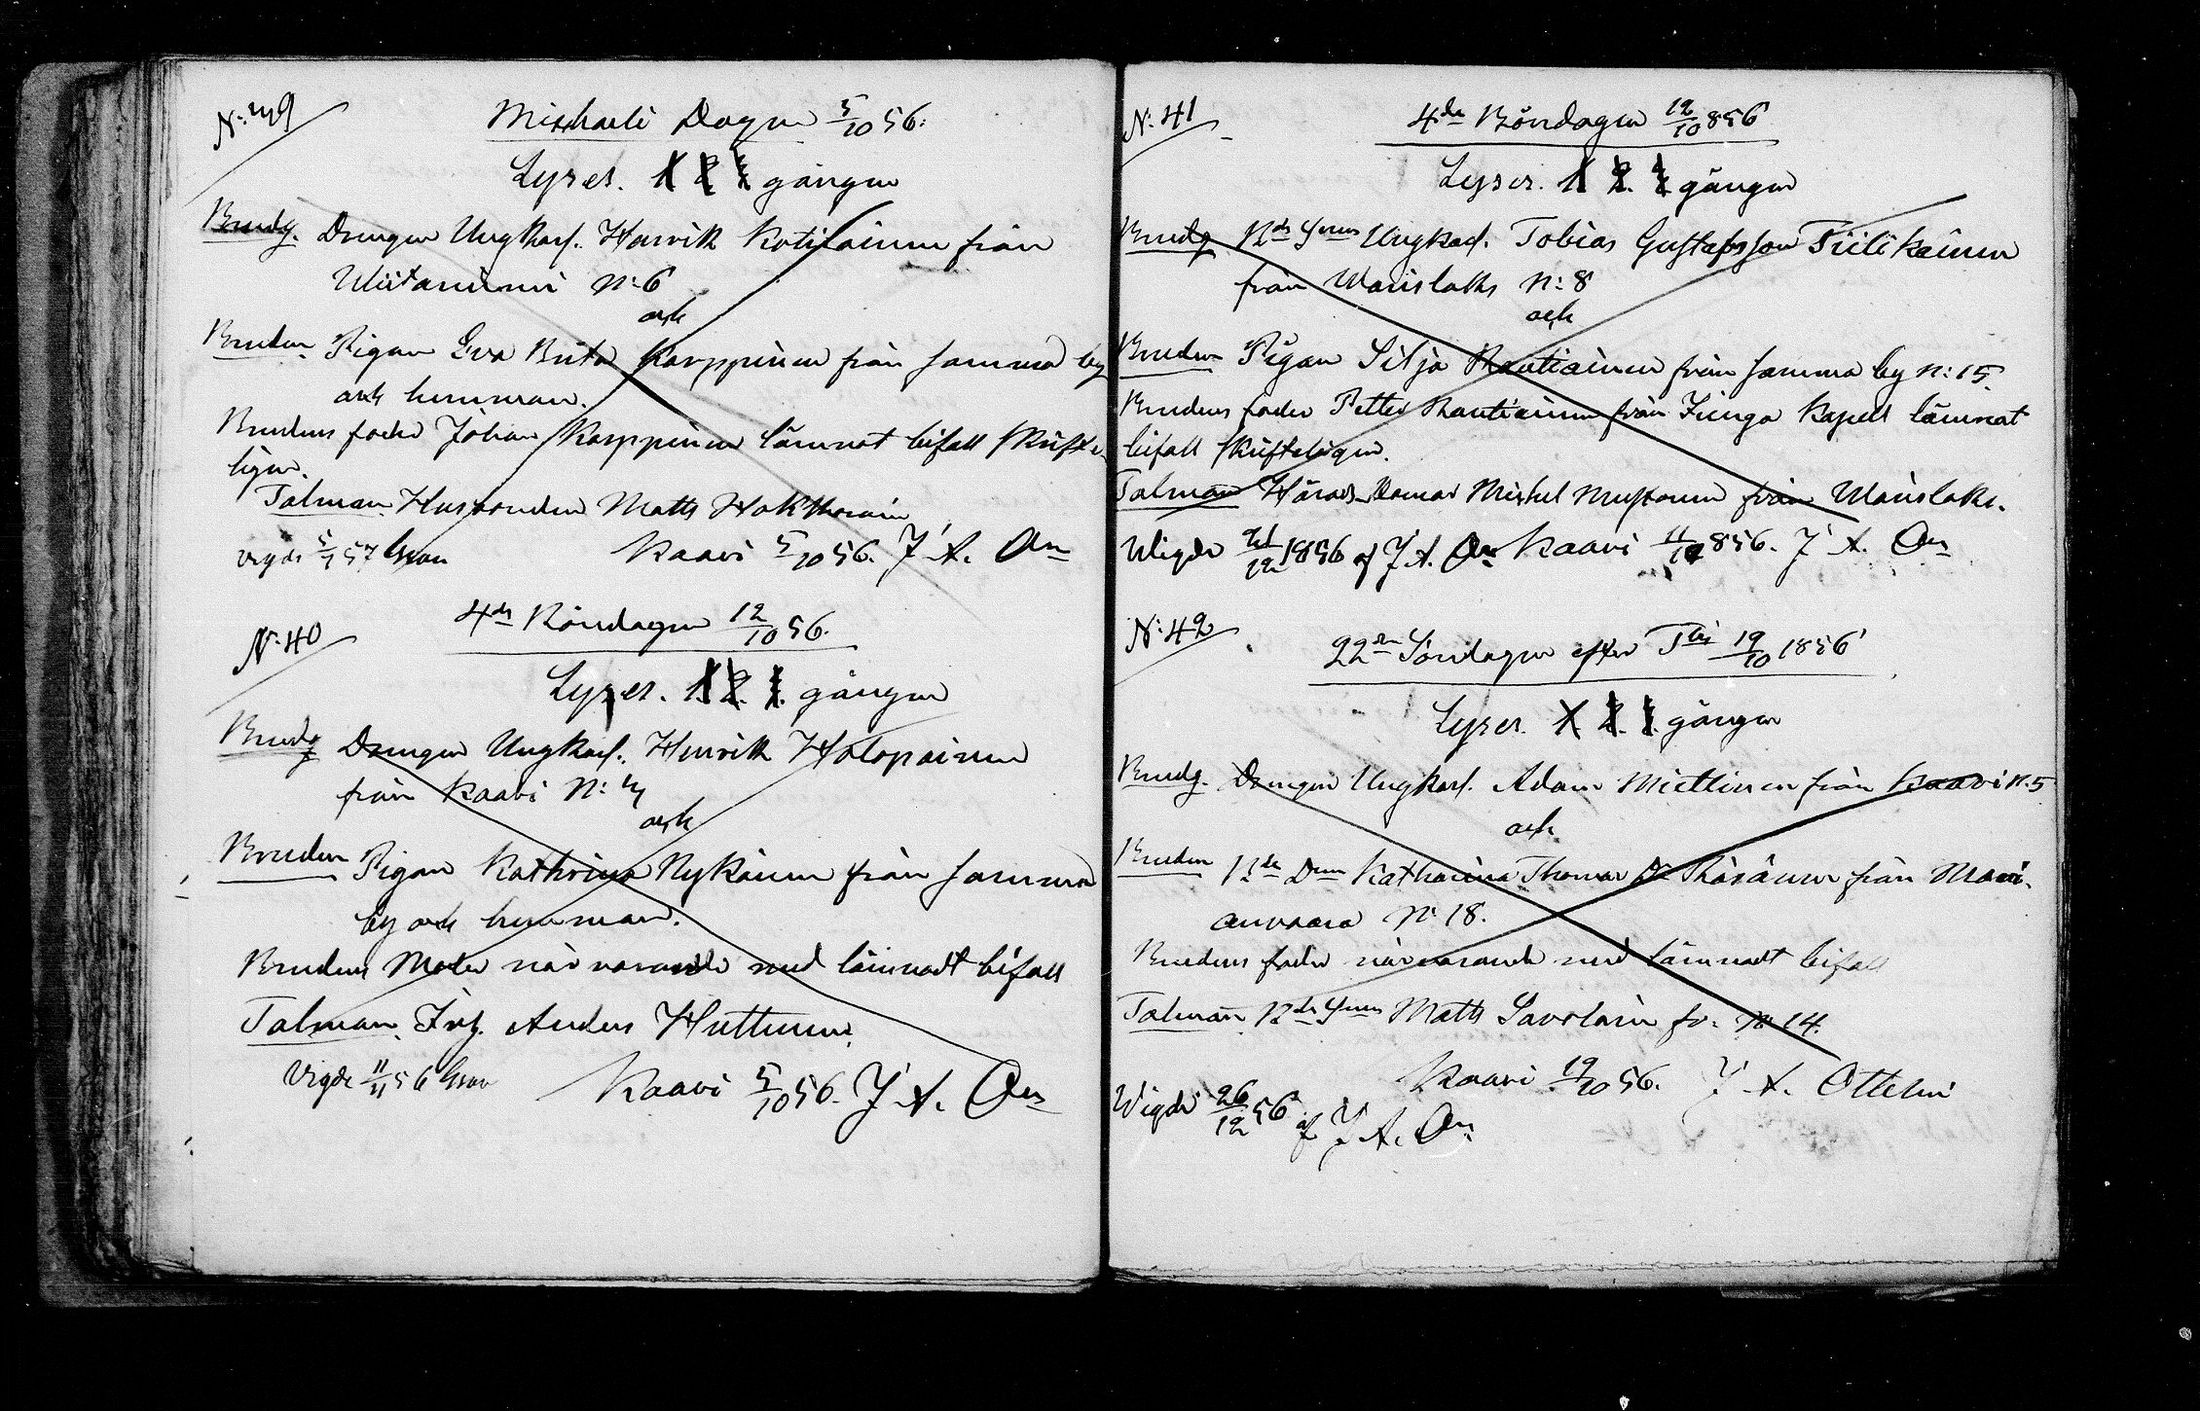 N:39
Michaeli Dagen 5/10 56.
Lyses. 1 2 3 gången
Brudg. Drengen Ungkarl. Henrik Kotilainen från
Wiitaniemi N:6
och
Bruden Pigan Eva Brita Karppinen från samma by
och hemman.
Brudens fader Johan Karppinen lämnat bifall skrifte-
ligen.
Talman Husbonden Matts Hakkarain
Vigde 5/1 57
Kaavi 5/10 56. J. A. On
N:40
4de Böndagen 12/10 56.
Lyses. 1. 2. 3. gången
Brudg Drengen Ungkarl. Henrik Holopainen
från Kaavi N: 3
och
Bruden Pigan Kathrina Nykänen från samma
by och hemman.
Brudens Moder närvarande med lämnadt bifall
Talman Anders Huttunen.
Vigde 11/11 56
Kaavi 5/10 56. J. A. On
N:41
4de Böndagen 12/10 856
Lyses. 1 2. 3 gången
Brudg Bde Sonen Ungkarl. Tobias Gustafsson Tiilikainen
från Wäris laks N:8
och
Bruden Pigan Silja Rautiainen från samma by N:15.
Brudens fader Petter Rautiainen från Juuga Kapell lämnat
bifall skrifteligen.
Talman Härads Domar Mickel Mustonen från Wärislaks.
Wigde 1856 af J. A. On Kaavi 856. J. A. On
N:42
22dra Söndagen efter Tbis 19/10 1856
Lyses. 1 2. 3. gången
Brudg. Drengen Ungkarl. Adam Miettinen från Kaavi N:5
och
Bruden Bde Dtren Katharina Thomas Dr Räsänen från Mari-
anvaara N 18.
Brudens fader närvarande med lämnadt bifall
Talman Bde Sonen Matts Savolain fr: N 14.
Kaavi 19/10 56. J. A. Ottelin
Wigde 26/12 56 af J. A. On